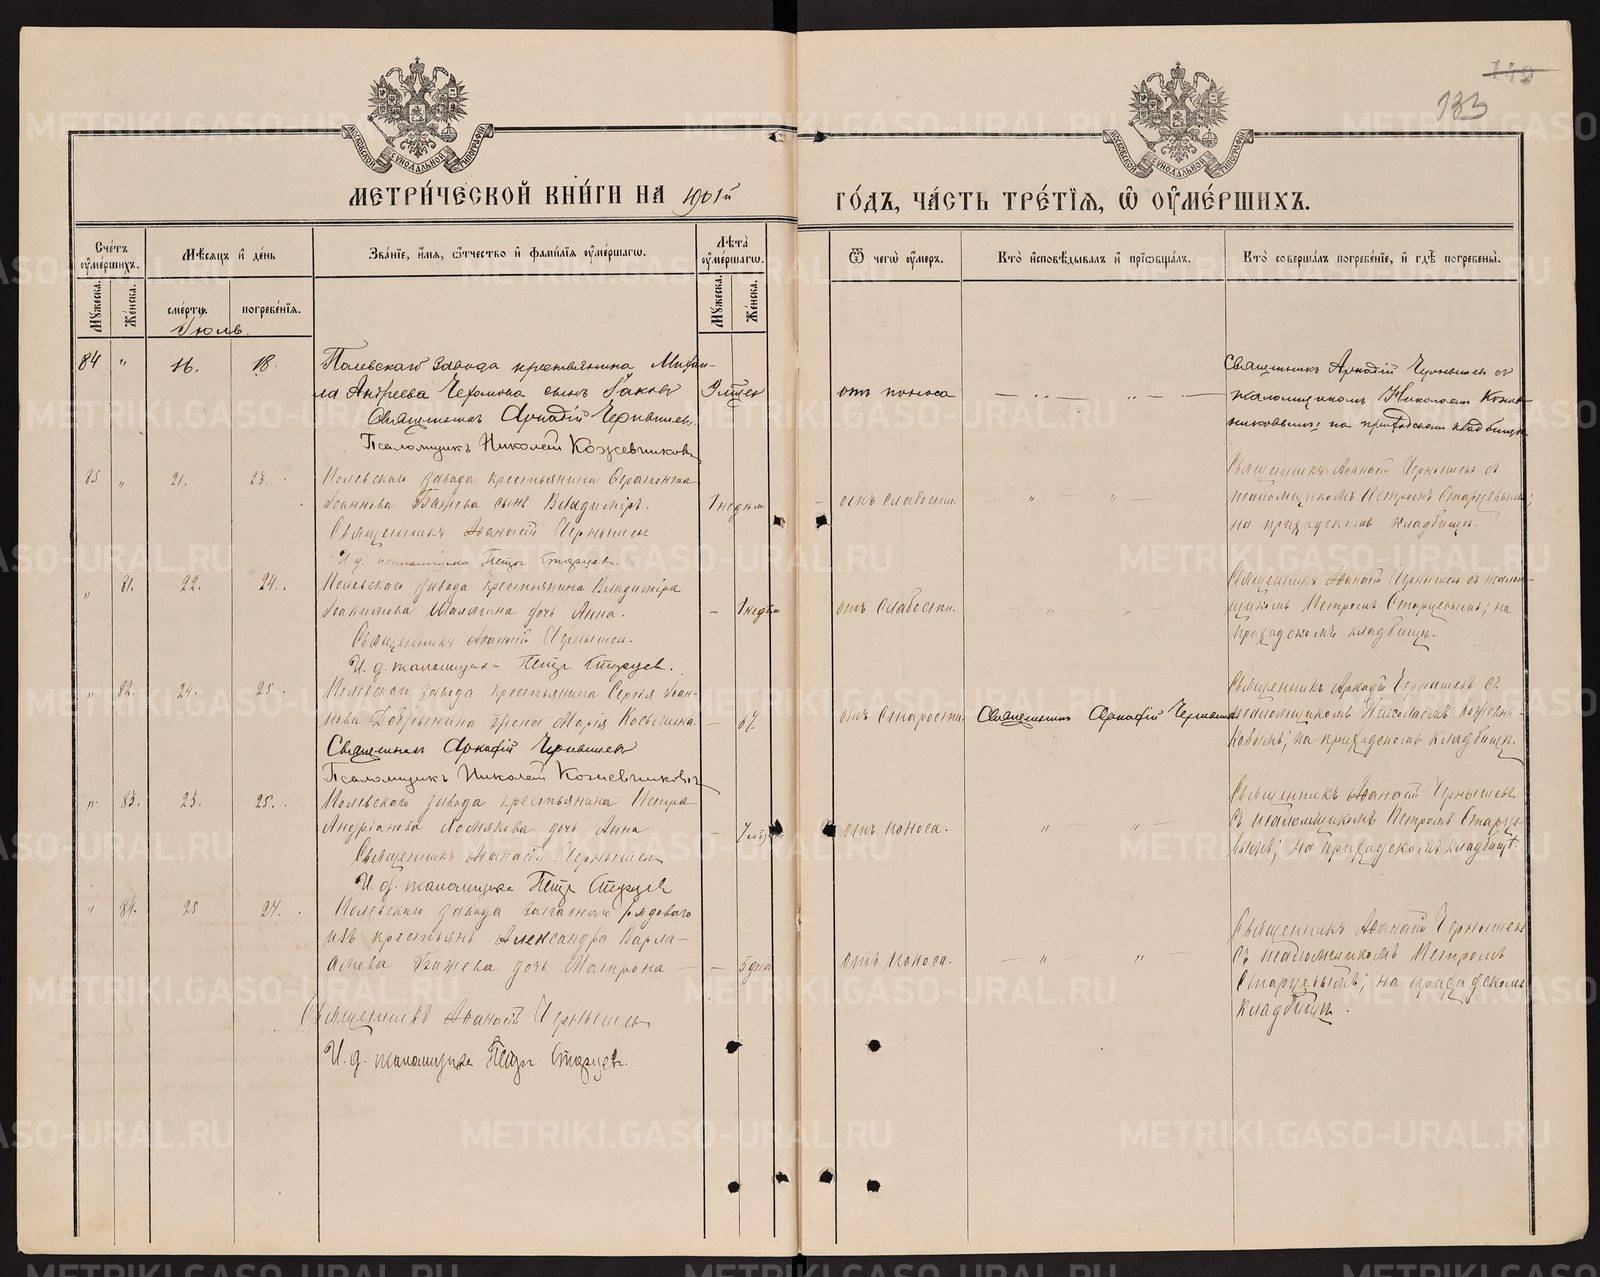 149
133
МОСКОВСКОЙ СѴНОДАЛЬНОЙ ТИПОГРАФІИ
МОСКОВСКОЙ СѴНОДАЛЬНОЙ ТИПОГРАФІИ
МЕТРИ́ЧЕСКОЙ КНИ́ГИ НА 1901й ГО́ДЪ, ЧА́СТЬ ТРЕ́ТІѦ, Ѿ ОУ҆МЕ́РШИХЪ.
Сче́тъ оу҆ме́ршихъ.
Мѣ́сѧцъ и҆ де́нь
Зва́нїе, и҆́мѧ, ѻ҆́тчество и҆ фамилїѧ оу҆ме́ршагѡ.
Лѣ́та оу҆ме́ршагѡ.
Ѿ чегѡ̀ оу҆́меръ.
Кто̀ и҆сповѣ́дывалъ и҆ прїѡбща́лъ.
Кто̀ соверша́лъ погребе́нїе, и҆ гдѣ̀ погребены̀.
Мꙋ́жеска.
Же́нска.
сме́рти.
погребе́нїѧ.
Мꙋ́жеска.
Же́нска.
Іюль.
84 " 16. 18.
Полевскаго завода крестьянина Михаи-
ла Андреева Чехомова сынъ Іаковъ
Священникъ Аркадій Чернышевъ
Псаломщикъ Николай Кожевниковъ
3 лѣтъ
отъ поноса
Священникъ Аркадій Чернышевъ съ
псаломщикомъ Николаемъ Кожев-
никовымъ; на приходскомъ кладбищѣ
85 " 21. 23.
Полевского завода крестьянина Ферапонта
Іоаннова Бажева сынъ Владиміръ.
Священникъ Аѳанасій Чернышевъ
И. д. псаломщика Петръ Старцевъ.
1 недѣли
отъ слабости.
Священникъ Аѳанасій Чернышевъ съ
псаломщикомъ Петромъ Старцевымъ;
на приходскомъ кладбищѣ.
" 81. 22. 24.
Полевского завода крестьянина Владиміра
Іоакимова дочь Анна.
Священникъ Аѳанасій Чернышевъ.
И. д. псаломщика Петръ Старцев.
1 недѣли
отъ слабости.
Священникъ Аѳанасій Чернышевъ съ псалом-
щикомъ Петромъ Старцевымъ; на
приходскомъ кладбищѣ.
" 82. 24. 25.
Полевского завода крестьянина Сергія Іоан-
нова Добрынина жена Марія Косьмина
Священникъ Аркадій Чернышевъ
Псаломщикъ Николай Кожевниковъ
67.
отъ старости.
Священникъ Аркадій Чернышевъ
Священникъ Аркадій Чернышевъ съ
псаломщикомъ Николаемъ Кожевни-
ковымъ; на приходскомъ кладбищѣ.
" 83. 23. 25.
Полевского завода крестьянина Петра
Андріанова дочь Анна
Священникъ Аѳанасій Чернышевъ
И. д. псаломщика Петръ Старцев
7 мѣс.
отъ поноса.
Священникъ Аѳанасій Чернышевъ
съ псаломщикомъ Петромъ Старце-
вымъ; на приходскомъ кладбищѣ.
" 84. 25 27.
Полевского завода запасного рядоваго
изъ крестьянъ Александра Варла-
амова Бажева дочь Матрона
Священникъ Аѳанасій Чернышевъ
И. д. псаломщика Петръ Старцев.
5 дней
отъ поноса.
Священникъ Аѳанасій Чернышевъ
съ псаломщикомъ Петромъ
Старцевымъ; на приходскомъ
кладбищѣ.
METRIKI.GASO-URAL.RU